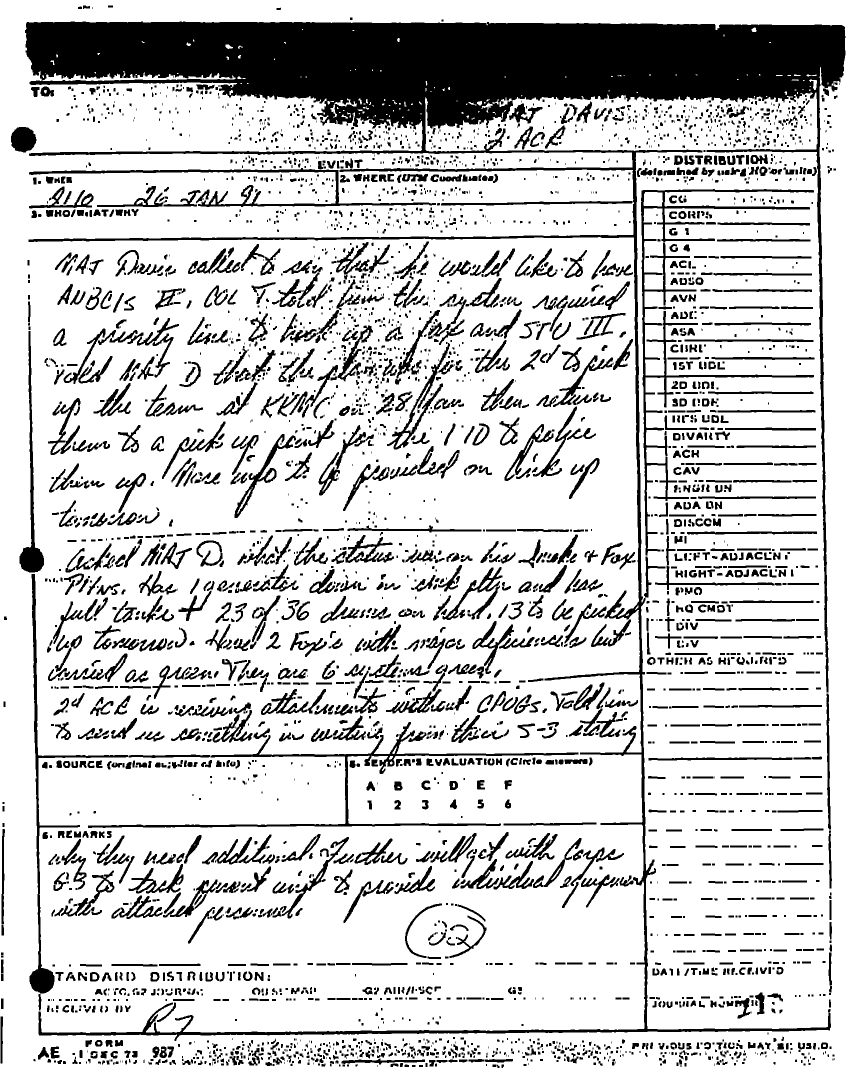 TO:
MAJ DAVIS
2 ACR
EVENT
DISTRIBUTION
(determined by using HQ or units)
1. WHEN
2. WHERE (UTM Coordinates)
2110 26 JAN 91
3. WHO/WHAT/WHY
MAJ Davis called to say that he would like to have
ANBCIS II. COL T told him the system required
a priority line to hook up a fax and STU III.
Told MAJ D that the plan was for the 2d to pick
up the team at KKMC on 28 Jan then return
them to a pick up point for the 1 ID to police
them up. More info to be provided on link up
tomorrow.
Asked MAJ D. what the status was on his Smoke + Fox
Pltns. Has 1 generator down in smk pltn and has
full tanks + 23 of 36 drums on hand. 13 to be picked
up tomorrow. Have 2 Fox's with major deficiencies but
carried as green. They are 6 systems green.
2d ACR is receiving attachments without CPOGs. Told him
to send us something in writing from their S-3 stating
CG
CORPS
G 1
G 4
ACL
ADSO
AVN
ADE
ASA
1ST BDE
2D BDE
3D BDE
RES BDE
DIVARTY
ACR
CAV
ENGR BN
ADA BN
DISCOM
MI
LEFT-ADJACENT
RIGHT-ADJACENT
PMO
HQ CMDT
DIV
DIV
OTHER AS REQUIRED
4. SOURCE (original supplier of info)
5. SENDER'S EVALUATION (Circle answers)
A B C D E F
1 2 3 4 5 6
6. REMARKS
why they need additional. Further will get with Corps
G-3 to task parent unit to provide individual equipment
with attached personnel.
22
STANDARD DISTRIBUTION:
G2 JOURNAL
G3
DATE/TIME RECEIVED
RECEIVED BY
JOURNAL NUMBER
AE FORM 1 DEC 73 987
PREVIOUS EDITION MAY BE USED.